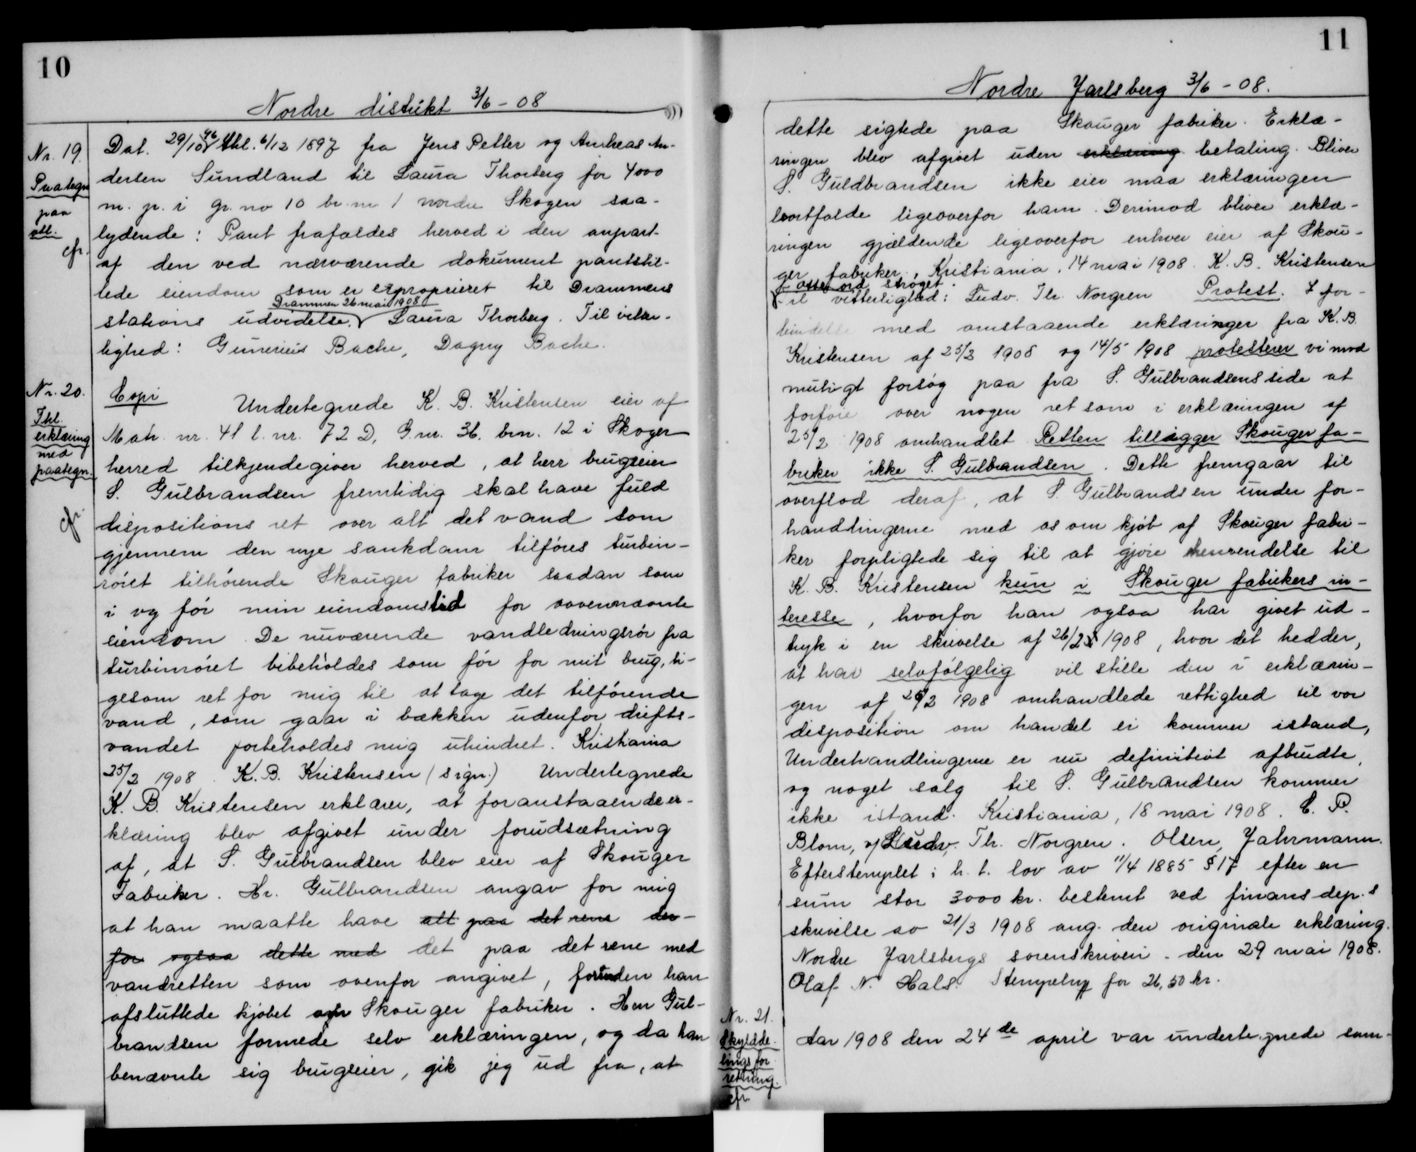 10
Nordre distrikt 3/6 - 08
Nr. 19.
Paategn
paa
obl.
cfr.
Dat. 29/10 96 thl. 6/12 1897 fra Jens Petter og Andreas An-
dersen Sundland til Laura Thorberg for 4000
m. p. i gr. no 10 br. nr 1 nordre Skogen saa-
lydende: Pant frafaldes herved i den anpart
af den ved nærværende dokument pantstil-
lede eiendom som er exproprieret til Drammens
Drammen 26 mai 1908
stations udvidelse. Laura Thorberg. Til vitter-
lighed: Gunerius Bache, Dagny Bache.
Nr. 20.
Thl.
erklæring
med
paategn.
cfr.
Copi Undertegnede K. B. Kristensen eier af
Matr. nr. 41 l. nr. 72 D, G.nr. 36. brn. 12 i Skoger
herred tilkjendegiver herved, at herr brugseier
S. Gulbrandsen fremtidig skal have fuld
dispositions ret over alt det vand som
gjennem den nye sankdam tilføres turbin-
røret tilhørende Skouger fabriker saadan som
i og før min eiendomstid for ovennævnte
eiendom. De nuværende vandledningsrør fra
turbinrøret bibeholdes som før for mit brug, li-
gesom ret for mig til at tage det tilførende
vand, som gaar i bækken udenfor drifts-
vandet forbeholdes mig uhindret. Kristiania
25/2 1908. K. B. Kristensen (sign.) Undertegnede
K. B. Kristensen erklærer, at foranstaaende er-
klæring blev afgivet under forudsætning
af, at S. Gulbrandsen blev eier af Skouger
Fabriker. Hr. Gulbrandsen angav for mig
at han maatte have alt paa det rene der-
for ogsaa dette med det paa det rene med
vandretten som ovenfor angivet, forinden han
afsluttede kjøbet af Skouger fabriker. Herr Gul-
brandsen formede selv erklæringen, og da han
benævnte sig brugseier, gik jeg ud fra, at
11
Nordre Jarlsberg 3/6 - 08.
dette sigtede paa Skouger fabriker. Erklæ-
ringen blev afgivet uden erklæring betaling. Bliver
S. Guldbrandsen ikke eier maa erklæringen
bortfalde ligeoverfor ham. Derimod bliver erklæ-
ringen gjældende ligeoverfor enhver eier af Skou-
ger fabriker, Kristiania, 14 mai 1908. K. B. Kristensen
otte ord strøget.
Til vitterlighed: Ludv. Th. Norgren Protest. I for-
bindelse med omstaaende erklæringer fra K. B.
Kristensen af 25/2 1908 og 14/5 1908 protesterer vi mod
muligt forsøg paa fra S. Gulbrandsens side at
forføie over nogen ret som i erklæringen af
25/2 1908 omhandlet Retten tillægger Skouger fa-
briker ikke S. Gulbrandsen. Dette fremgaar til
overflod deraf, at S. Gulbrandsen under for-
handlingerne med os om kjøb af Skouger fabri-
ker forpligtede sig til at gjøre henvendelse til
K. B. Kristensen kun i Skouger fabrikers in-
teresse, hvorfor han ogsaa har givet ud-
tryk i en skrivelse af 26/2 1908, hvor det hedder,
at han selvfølgelig vil stille den i erklærin-
gen af 25/2 1908 omhandlede rettighed til vor
disposition om handel ei kommer istand,
Underhandlingerne er nu definitivt afbrudte,
og noget salg til S. Gulbrandsen kommer
ikke istand. Kristiania, 18 mai 1908. C. P.
Blom, v/ Ludv. Th. Norgren. Olsen, Jahrmann.
Efterstemplet i h. t. lov av 11/4 1885 § 17 efter en
sum stor 3000 kr. bestemt ved finansdep.s
skrivelse av 21/3 1908 ang. den originale erklæring.
Nordre Jarlsbergs sorenskriveri. den 29 mai 1908.
Olaf N. Hals. Stempelay for 26,50 kr.
Nr. 21.
Skyldde-
lings for
retning.
cfr.
Aar 1908 den 24de april var undertegnede sam-